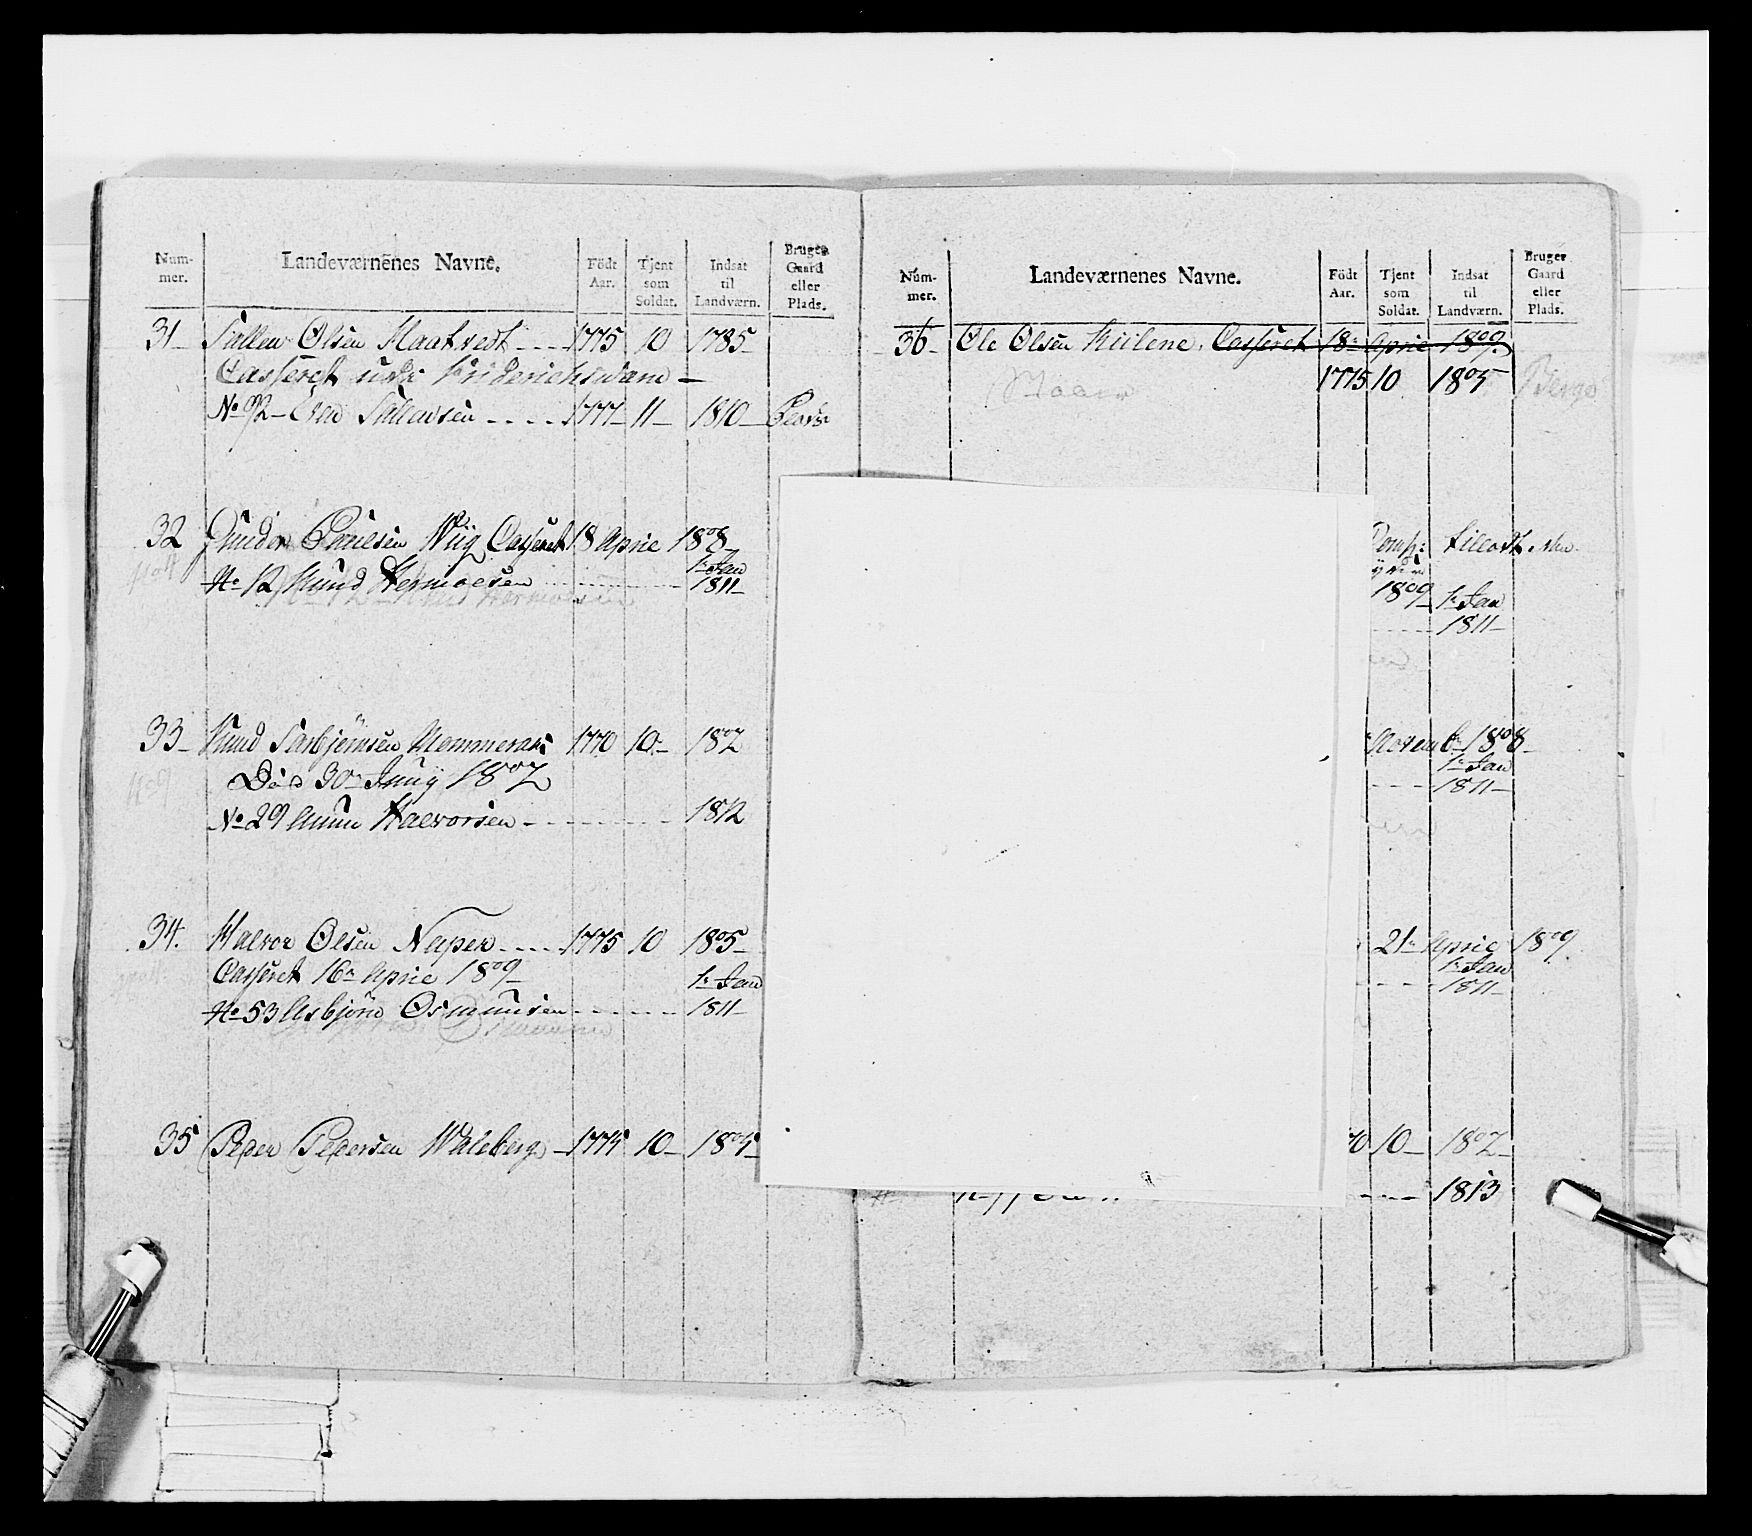 Num-
mer.
Landeværnenes Navne.
Födt
Aar.
Tjent
som
Soldat.
Indsat
til
Landværn.
Bruger
Gaard
eller
Plads.
31 Tallev Olsen Haatvedt 1775 10 1785
Casseret
No 92 Even Tallevsen 1777 11 1810 Plads
32 Gunder Poulsen Wiig Casseret 18 Aprie 1808
1e Jan
No 12 Knud Hermoesen 1811
33 Knud Torbjørnsen 1770 10 1807
Død 30e Juny 1807
No 29 Halvorsen 1812
34. Halvor Olsen Neper 1775 10 1805
Casseret 16e Aprie 1809
1e Jan
No 53 Asbjørn Osmunsen 1811
35 Peder Pedersen Waleberg 1775 10 1805
Num-
mer.
Landeværnenes Navne.
Födt
Aar.
Tjent
som
Soldat.
Indsat
til
Landværn.
Bruger
Gaard
eller
Plads.
36 Ole Olsen Kiilene Casseret 18e Aprie 1809
1775 10 1805
Comp:
1809 1e Jan
1811
Novemb 1808
1e Jan
1811
21e Aprie 1809
1e Jan
1811
70 10 1807
1813